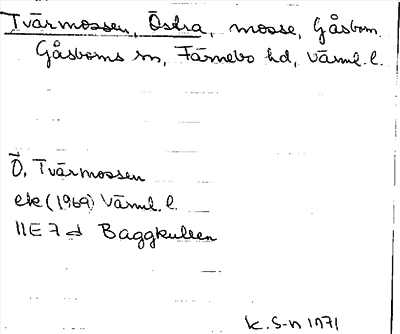 Tvärmossen, Östra, mosse, Gåsbom.
Gåsboms sn, Färnebo hd, Värml. l.
Ö. Tvärmossen
ek (1969) Värml. l.
11E 7 d Baggkullen
K. S-n 1971